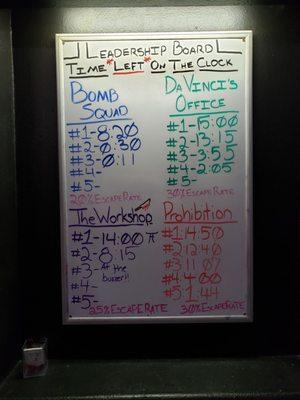 Leadership Board
Time *Left* On The Clock
Bomb
Squad
#1-8:20
#2-0:30
#3-0:11
#4-
#5-
20% Escape Rate
DaVinci's
Office
#1-15:00
#2-13:15
#3-3:55
#4-2:05
#5-
30% Escape Rate
The Workshop
#1-14:00 π
#2-8:15
#3- At the
buzzer!!
#4-
#5-
25% Escape Rate
Prohibition
#1:14:50
#2:12:40
#3:11:07
#4:4:00
#5:1:44
30% Escape Rate